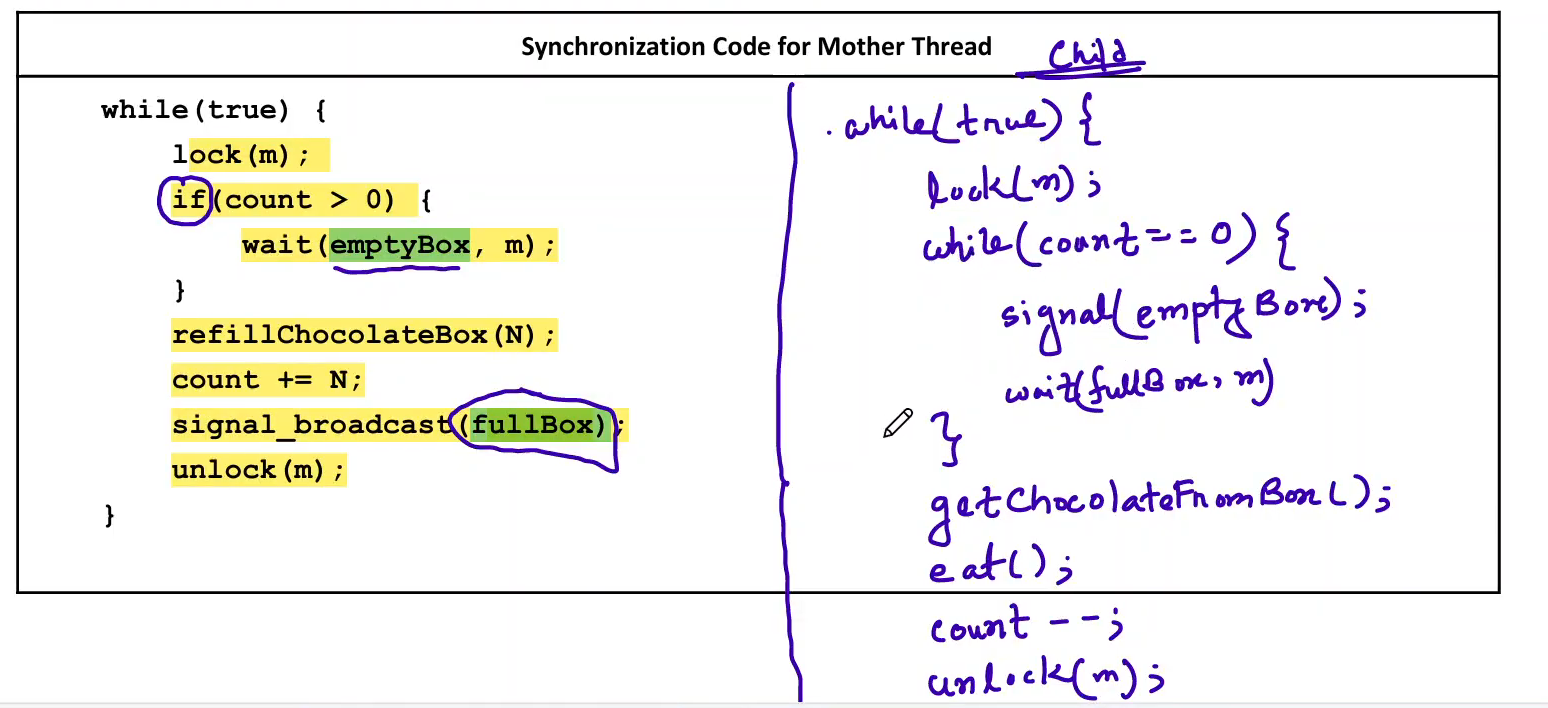 Synchronization Code for Mother Thread
Child
while(true) {
lock(m);
if(count > 0) {
wait(emptyBox, m);
}
refillChocolateBox(N);
count += N;
signal_broadcast(fullBox);
unlock(m);
}
while(true) {
lock(m);
while(count==0) {
signal(emptyBox);
wait(fullBox, m)
}
getChocolateFromBox();
eat();
count --;
unlock(m);